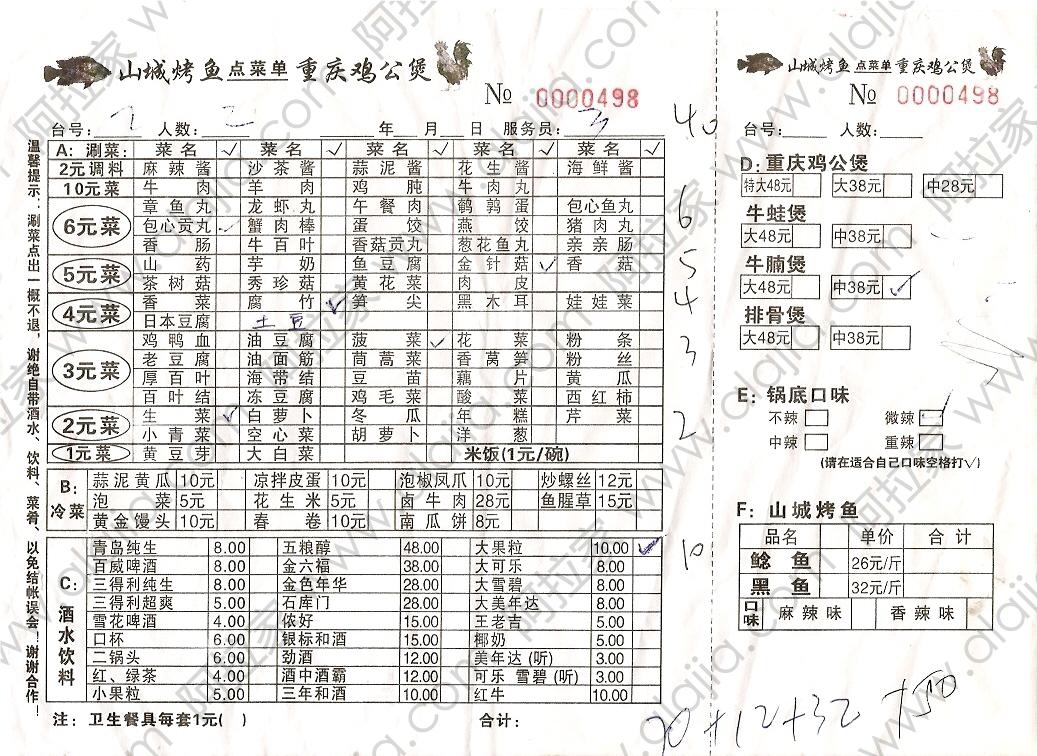 山城烤鱼 点菜单 重庆鸡公煲
№ 0000498
台号: 2 人数: 二 年 月 日 服务员: 3
A: 涮菜: 菜名 ✓ 菜名 ✓ 菜名 ✓ 菜名 ✓ 菜名 ✓ 40
2元调料 麻辣酱 沙茶酱 蒜泥酱 花生酱 海鲜酱
10元菜 牛肉 羊肉 鸡肫 牛肉丸
6元菜 章鱼丸 龙虾丸 午餐肉 鹌鹑蛋 包心鱼丸 6
包心贡丸 ✓ 蟹肉棒 蛋饺 燕饺 猪肉丸
香肠 牛百叶 香菇贡丸 葱花鱼丸 亲亲肠
5元菜 山药 芋奶 鱼豆腐 金针菇 ✓ 香菇 5
茶树菇 秀珍菇 黄花菜 肉皮
4元菜 香菜 腐竹 ✓ 笋尖 黑木耳 娃娃菜 4
日本豆腐 土豆
3元菜 鸡鸭血 油豆腐 菠菜 ✓ 花菜 粉条 3
老豆腐 油面筋 茼蒿菜 香莴笋 粉丝
厚百叶 海带结 豆苗 藕片 黄瓜
百叶结 冻豆腐 鸡毛菜 酸菜 西红柿
2元菜 生菜 ✓ 白萝卜 冬瓜 年糕 芹菜 2
小青菜 空心菜 胡萝卜 洋葱
1元菜 黄豆芽 大白菜 米饭(1元/碗)
B: 冷菜
蒜泥黄瓜 10元 凉拌皮蛋 10元 泡椒凤爪 10元 炒螺丝 12元
泡菜 5元 花生米 5元 卤牛肉 28元 鱼腥草 15元
黄金馒头 10元 春卷 10元 南瓜饼 8元
C: 酒水饮料
青岛纯生 8.00 五粮醇 48.00 大果粒 10.00 ✓ 10
百威啤酒 8.00 金六福 38.00 大可乐 8.00
三得利纯生 8.00 金色年华 28.00 大雪碧 8.00
三得利超爽 5.00 石库门 28.00 大美年达 8.00
雪花啤酒 4.00 侬好 15.00 王老吉 5.00
口杯 6.00 银标和酒 15.00 椰奶 5.00
二锅头 6.00 劲酒 12.00 美年达(听) 3.00
红、绿茶 4.00 酒中酒霸 12.00 可乐 雪碧(听) 3.00
小果粒 5.00 三年和酒 10.00 红牛 10.00
注: 卫生餐具每套1元( ) 合计:
温馨提示、涮菜点出一概不退,谢绝自带酒水、饮料、菜肴、以免结帐误会!谢谢合作!
山城烤鱼 点菜单 重庆鸡公煲
№ 0000498
台号: 人数:
D: 重庆鸡公煲
特大48元 大38元 中28元
牛蛙煲
大48元 中38元
牛腩煲
大48元 中38元 ✓
排骨煲
大48元 中38元
E: 锅底口味
不辣 微辣 ✓
中辣 重辣
(请在适合自己口味空格打✓)
F: 山城烤鱼
品名 单价 合计
鲶鱼 26元/斤
黑鱼 32元/斤
口味 麻辣味 香辣味
阿拉家 www.alajia.com